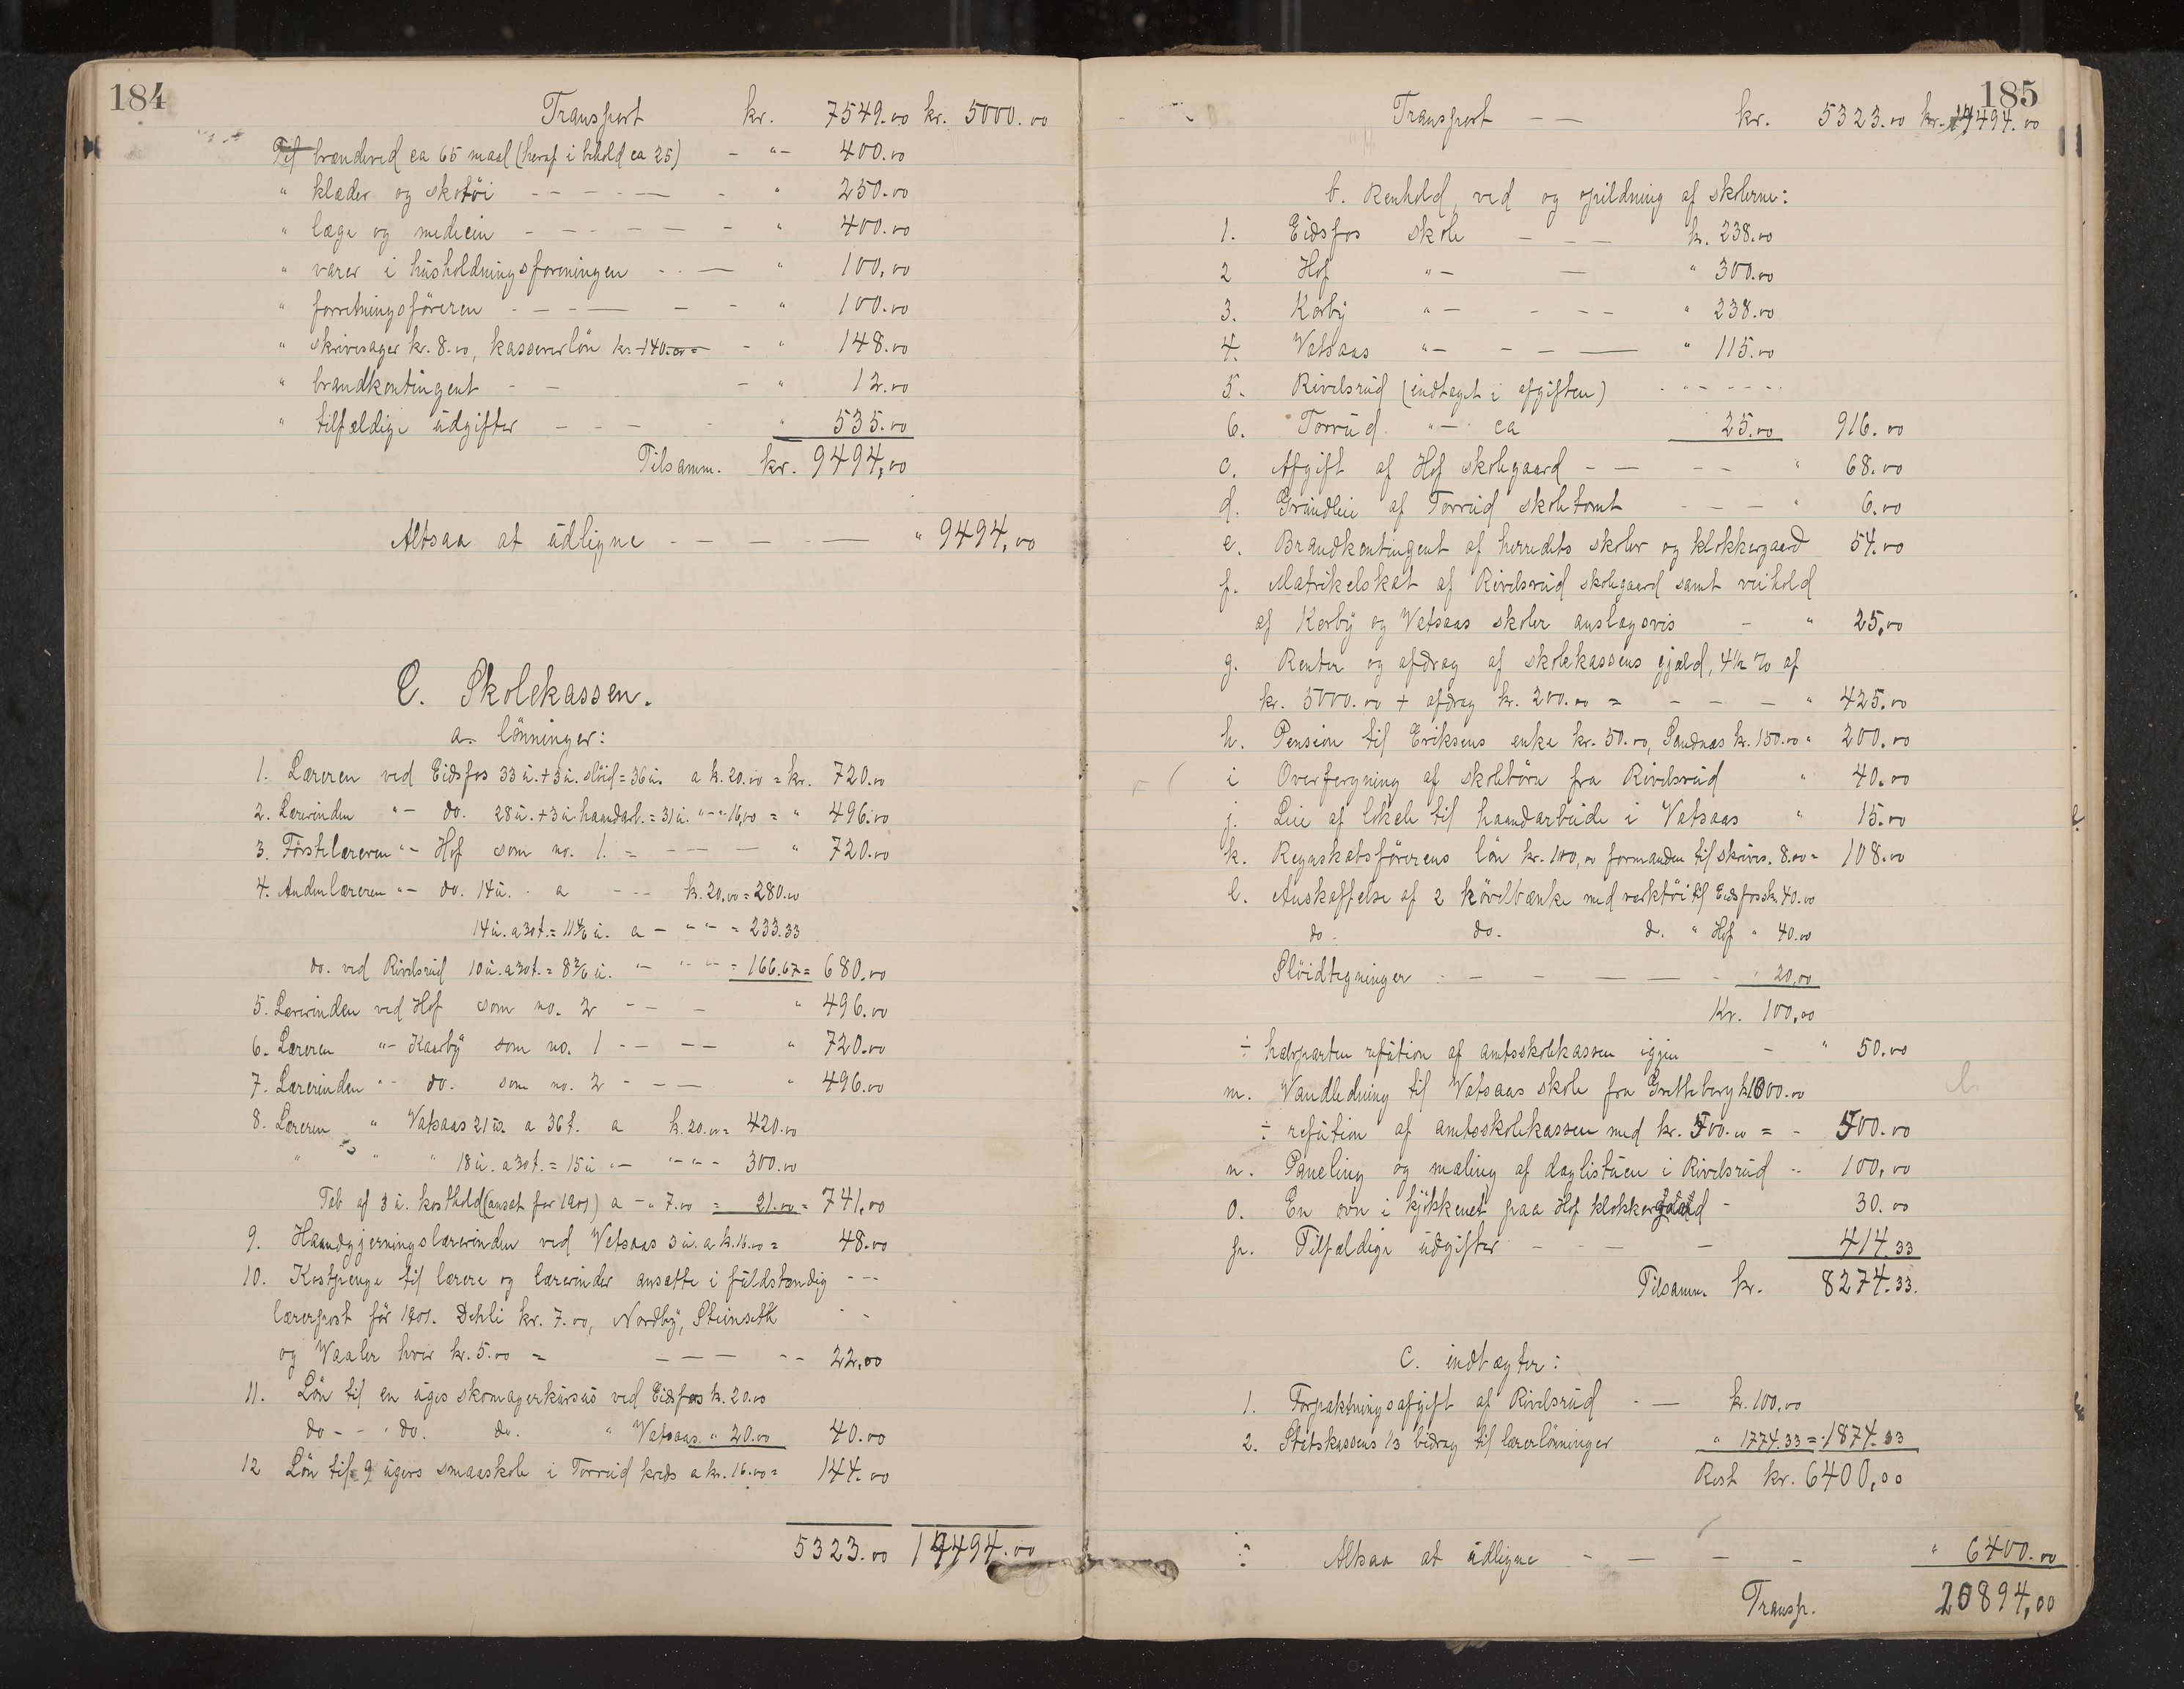 184
Transport kr. 7549.00 kr. 5000.00
Til brændeved ca 65 maal (heraf i behold ca 25) - " - 400.00
" klæder og skotöi - - - - - " 250.00
" læge og medicin - - - - - - " 400.00
" varer i husholdningsforeningen - - - " 100,00
" forretningsföreren - - - - - - " 100.00
" skrivesager kr. 8.00, kassererlön kr. 140.00 = - " 148.00
" brandkontingent - - - " 12.00
" tilfældige udgifter - - - - " 535.00
Tilsamm. kr. 9494,00
Altsaa at udligne - - - - - " 9494,00
C. Skolekassen.
a. lönninger:
1. Læreren ved Eidsfos 33 u. + 3 u. slöid = 36 u. a k. 20.00 = kr. 720.00
2. Lærerinden " - do. 28 u. + 3 u. haandarb. = 31 u. " - " - 16,00 = " 496.00
3. Förstelæreren " - Hof som no. 1. = - - - " 720.00
4. Andenlæreren " - do. 14 u. a - - - k. 20,00 = 280.00
14 u. a 30 t. = 11 4/6 u. a - " - " - = 233.33
do. ved Rivelsrud 10 u. a 30 t. = 8 2/6 u. " - " - " - = 166.67 = 680.00
5. Lærerinden ved Hof som no. 2 - - - " 496.00
6. Læreren " - Kaarby som no. 1 - - - - " 720.00
7. Lærerinden " - do. som no. 2 - - - " 496.00
8. Læreren " Vatsaas 21 u. a 36 t. a k. 20.00 = 420.00
" " " 18 u. a 30 t. = 15 u. " - " - " - 300.00
Tab af 3 u. kosthold (ansat för 1901) a - " 7.00 = 21.00 = 741,00
9. Haandgjerningslærerinden ved Vatsaas 3 u. a k. 16.00 = 48.00
10. Kostpenge til lærere og lærerinder ansatte i fuldstændig - - -
lærerpost för 1901. Dehli kr. 7.00, Nordby, Steinseth - -
og Vaaler hver kr. 5.00 = - - - - - 22,00
11. Lön til en uges skomagerkursus ved Eidsfos k. 20.00
do - - do. do. " Vatsaas " 20.00 40.00
12 Lön til 9 ugers smaaskole i Torrud kreds a kr. 16.00 = 144.00
5323.00 14494.00
185
Transport - - kr. 5323.00 kr. 14494.00
b. Renhold, ved og opildning af skolerne:
1. Eidsfos skole - - - k. 238.00
2 Hof " - - " 300.00
3. Korby " - - - - " 238.00
4. Vatsaas " - - - - " 115.00
5. Rivelsrud (indtaget i afgiften) - - - - -
6. Torrud " - ca 25.00 916.00
c. Afgift af Hof skolegaard - - - - " 68.00
d. Grundleie af Torrud skoletomt - - - " 6.00
e. Brandkontingent af herredets skoler og klokkergaard 54.00
f. Matrikelskat af Rivelsrud skolegaard samt veihold
af Korby og Vatsaas skoler anslagsvis - " 25,00
g. Renter og afdrag af skolekassens gjæld, 4 1/2 % af
kr. 5000.00 + afdrag kr. 200.00 = - - - " 425.00
h. Pension til Eriksens enke kr. 50.00, Sandnæs kr. 150.00 " 200.00
i Overfergning af skolebörn fra Rivelsrud " 40.00
j. Leie af lokale til haandarbeide i Vatsaas " 15.00
k. Regnskabsförerens lön kr. 100,00 formanden til skrives. 8.00 = 108.00
l. Anskaffelse af 2 hövelbænke med værktöi til Eidsfos sk. 40.00
do. do. d. " Hof " 40.00
Slöidtegninger - - - - - - " 20,00
Kr. 100,00
÷ halvparten refution af amtsskolekassen igjen - " 50.00
m. Vandledning til Vatsaas skole fra Gretteberg k. 1000.00
÷ refution af amtsskolekassen med kr. 500.00 = - 500.00
n. Paneling og maling af dagligstuen i Rivelsrud - - 100,00
o. En ovn i kjökkenet paa Hof klokkergaard - 30.00
p. Tilfældige udgifter - - - - 414.33
Tilsamm. kr. 8274.33.
c. indtægter:
1. Forpaktningsafgift af Rivelsrud - - k. 100,00
2. Statskassens 1/3 bidrag til lærerlönninger " 1774.33 = 1874.33
Rest kr. 6400,00
÷ Altsaa at udligne - - - - " 6400.00
Transp. 20894,00